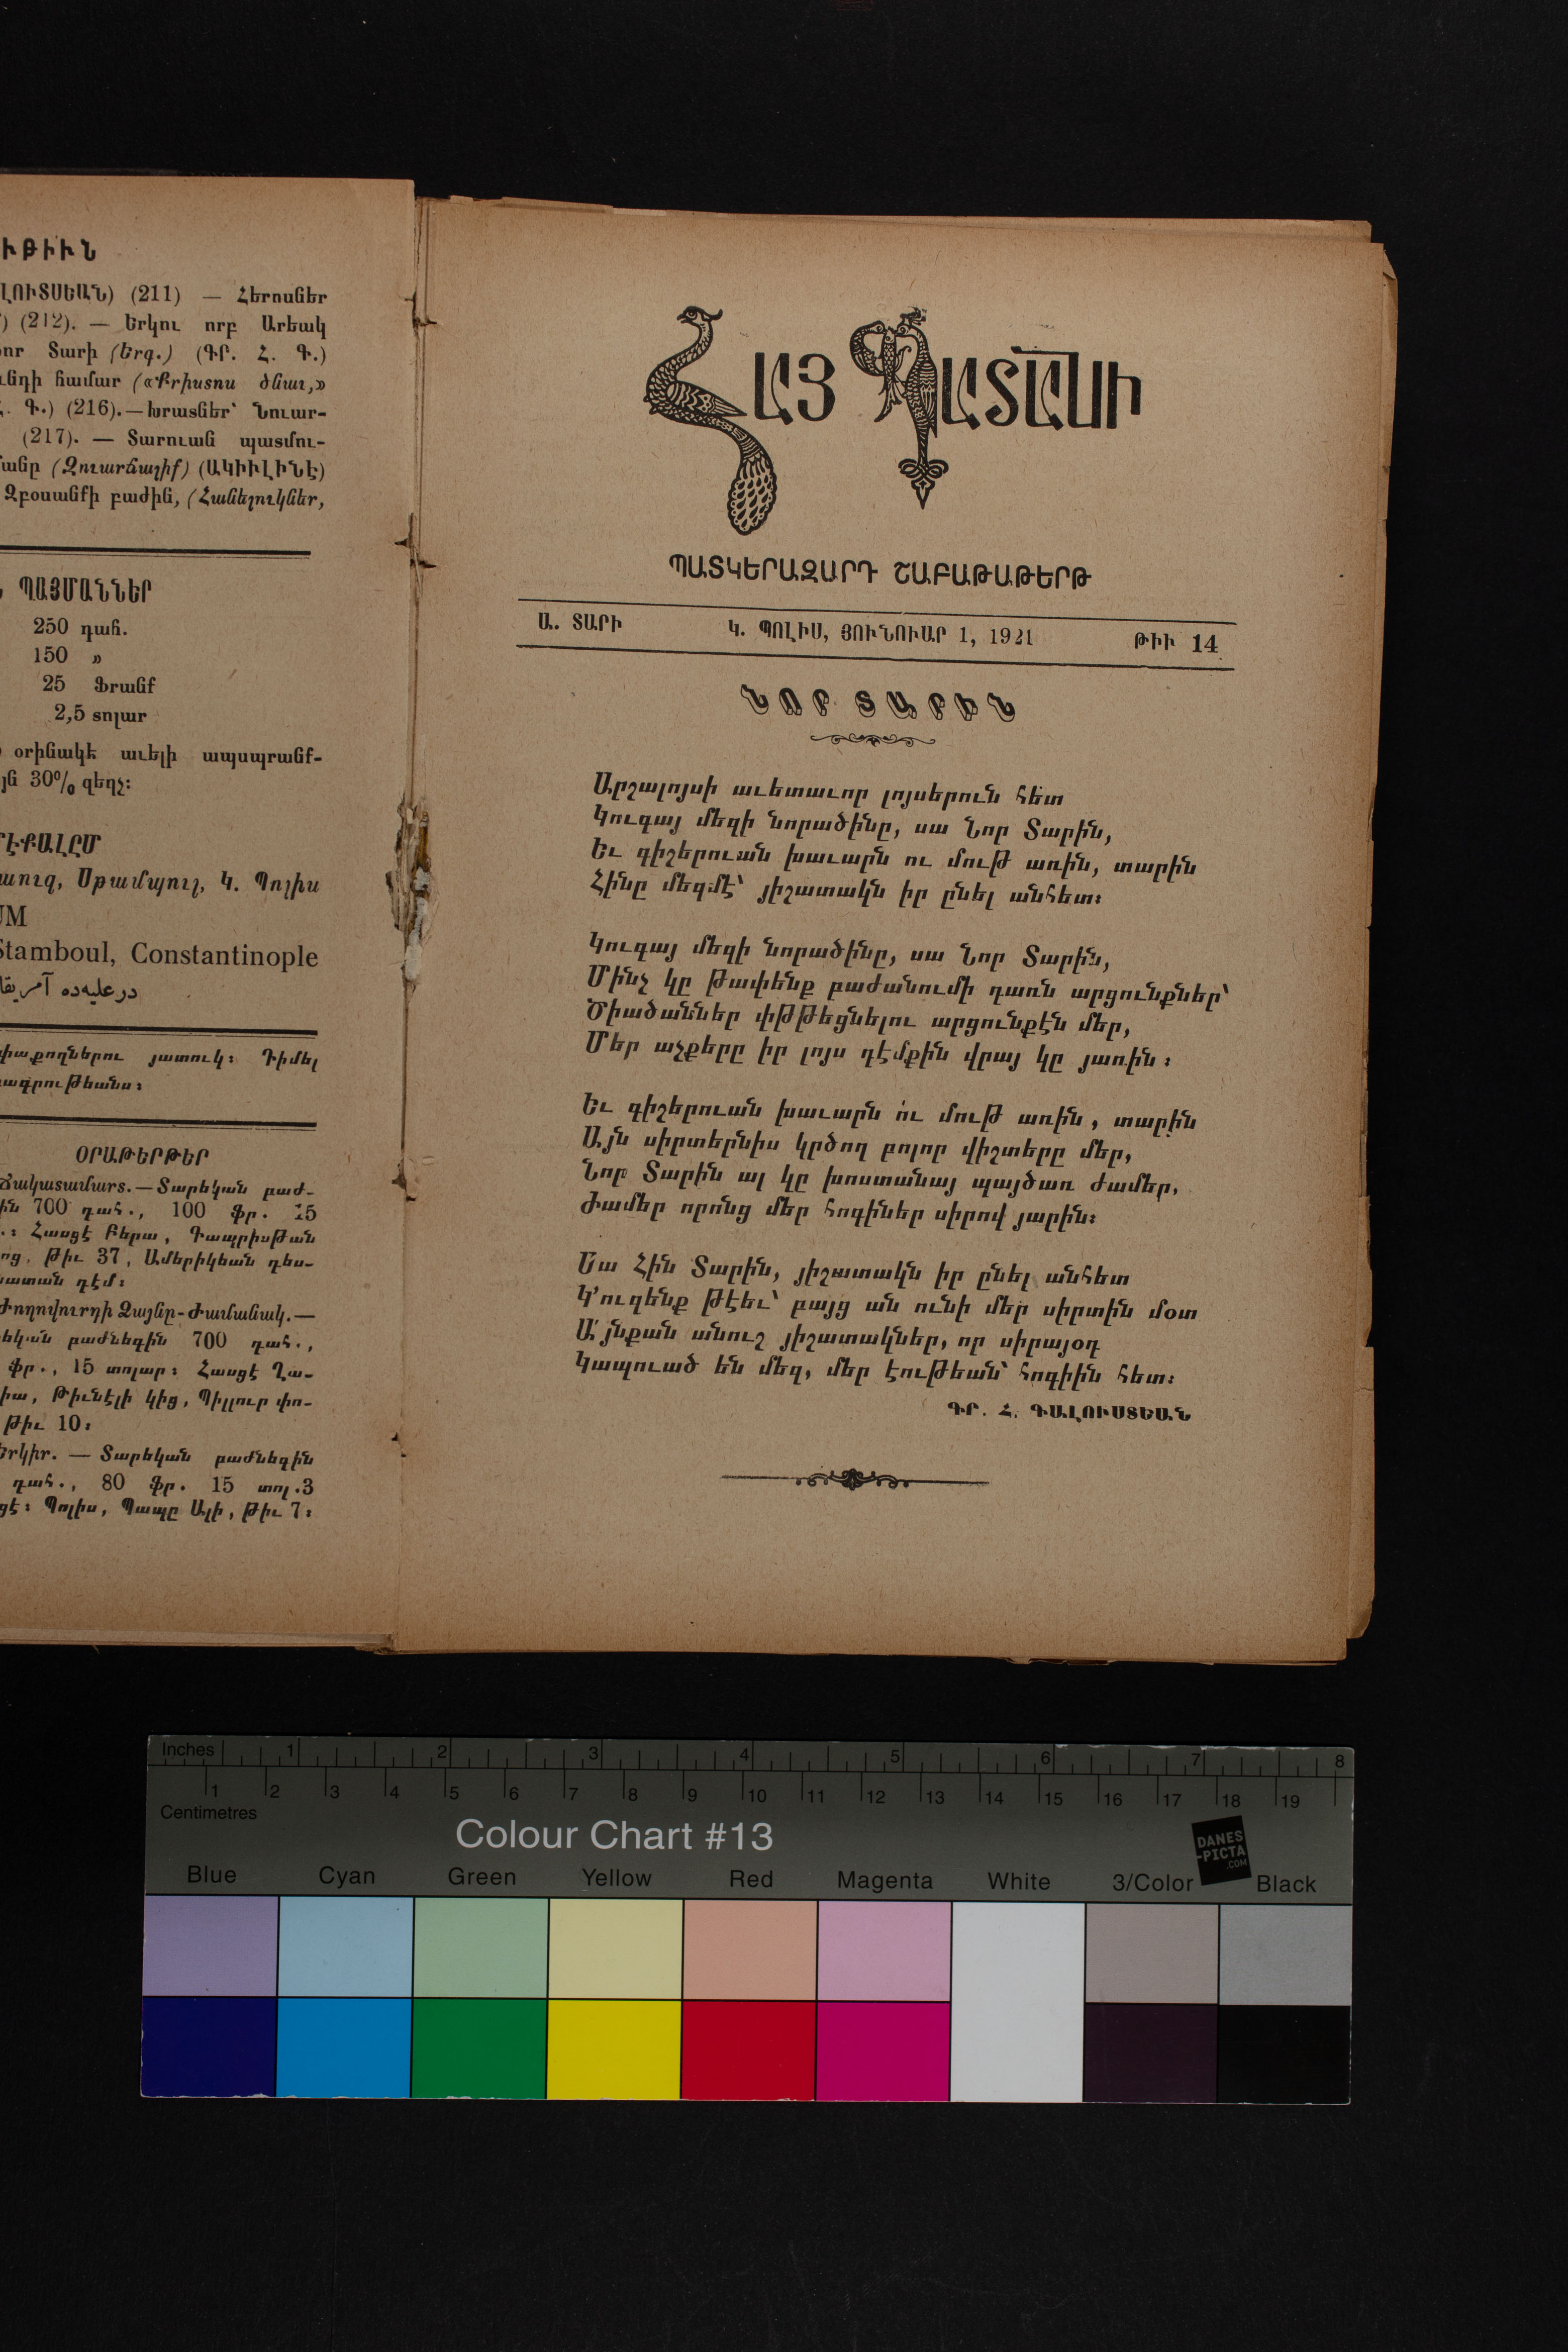 ՒԹԻՒՆ
ԼՈՒՏՍԵԱՆ) (211) — Հերոսներ
(212). — Երկու որբ Արեակ
նոր Տարի (Երգ.) (ԳՐ. Հ. Գ.)
համար («Քրիստոս ծնաւ,»
Գ.) (216).—Խրատներ՝ Նուար-
(217). — Տարուան պատմու-
(Զուարճալիք) (ԱԿԻՒԼԻՆԷ)
Զբօսանքի բաժին, (Հանելուկներ,
ՊԱՅՄԱՆՆԵՐ
250 դահ.
150 »
25 Ֆրանք
2,5 տոլար
օրինակէ աւելի ապսպրանք-
30% զեղչ։
Սթամպուլ, Կ. Պոլիս
UM
Stamboul, Constantinople
درعليه‌ده
յատուկ։ Դիմել
ՕՐԱԹԵՐԹԵՐ
Ճակատամարտ.—Տարեկան բաժ-
ին 700 դահ., 100 ֆր. 15
.։ Հասցէ Բերա, Գապրիսթան
ոց, Թիւ 37, Ամերիկեան դես-
պատան դէմ։
Ժողովուրդի Ձայնը-Ժամանակ.—
եկան բաժնեգին 700 դահ.,
ֆր., 15 տոլար։ Հասցէ Ղա-
իա, Թիւնէլի կից, Պիլլուր փո-
Թիւ 10։
Երկիր. — Տարեկան բաժնեգին
դահ., 80 ֆր. 15 տոլ.3
ցէ։ Պոլիս, Պապը Ալի, Թիւ 7։
ՀԱՅ ՊԱՏԱՆԻ
ՊԱՏԿԵՐԱԶԱՐԴ ՇԱԲԱԹԱԹԵՐԹ
Ա. ՏԱՐԻ Կ. ՊՈԼԻՍ, ՅՈՒՆՈՒԱՐ 1, 1921 ԹԻՒ 14
ՆՈՐ ՏԱՐԻՆ
Արշալոյսի աւետաւոր լոյսերուն հետ
Կուգայ մեզի նորածինը, սա Նոր Տարին,
Եւ գիշերուան խաւարն ու մութ առին, տարին
Հինը մեզմէ՝ յիշատակն իր ընել անհետ։
Կուգայ մեզի նորածինը, սա Նոր Տարին,
Մինչ կը թափենք բաժանումի դառն արցունքներ՝
Ծիածաններ փթթեցնելու արցունքէն մեր,
Մեր աչքերը իր լոյս դէմքին վրայ կը յառին։
Եւ գիշերուան խաւարն ու մութ առին, տարին
Այն սիրտերնիս կրծող բոլոր վիշտերը մեր,
Նոր Տարին ալ կը խոստանայ պայծառ ժամեր,
Ժամեր որոնց մեր հոգիներ սիրով յարին։
Սա Հին Տարին, յիշատակն իր ընել անհետ
Կ՚ուզենք թէեւ՝ բայց ան ունի մեր սիրտին մօտ
Ա՛յնքան անուշ յիշատակներ, որ սիրայօդ
Կապուած են մեզ, մեր էութեան՝ հոգիին հետ։
ԳՐ. Հ. ԳԱԼՈՒՍՏԵԱՆ
Inches 1 2 3 4 5 6 7 8
1 2 3 4 5 6 7 8 9 10 11 12 13 14 15 16 17 18 19
Centimetres
Colour Chart #13
DANES
-PICTA
.COM
Blue Cyan Green Yellow Red Magenta White 3/Color Black